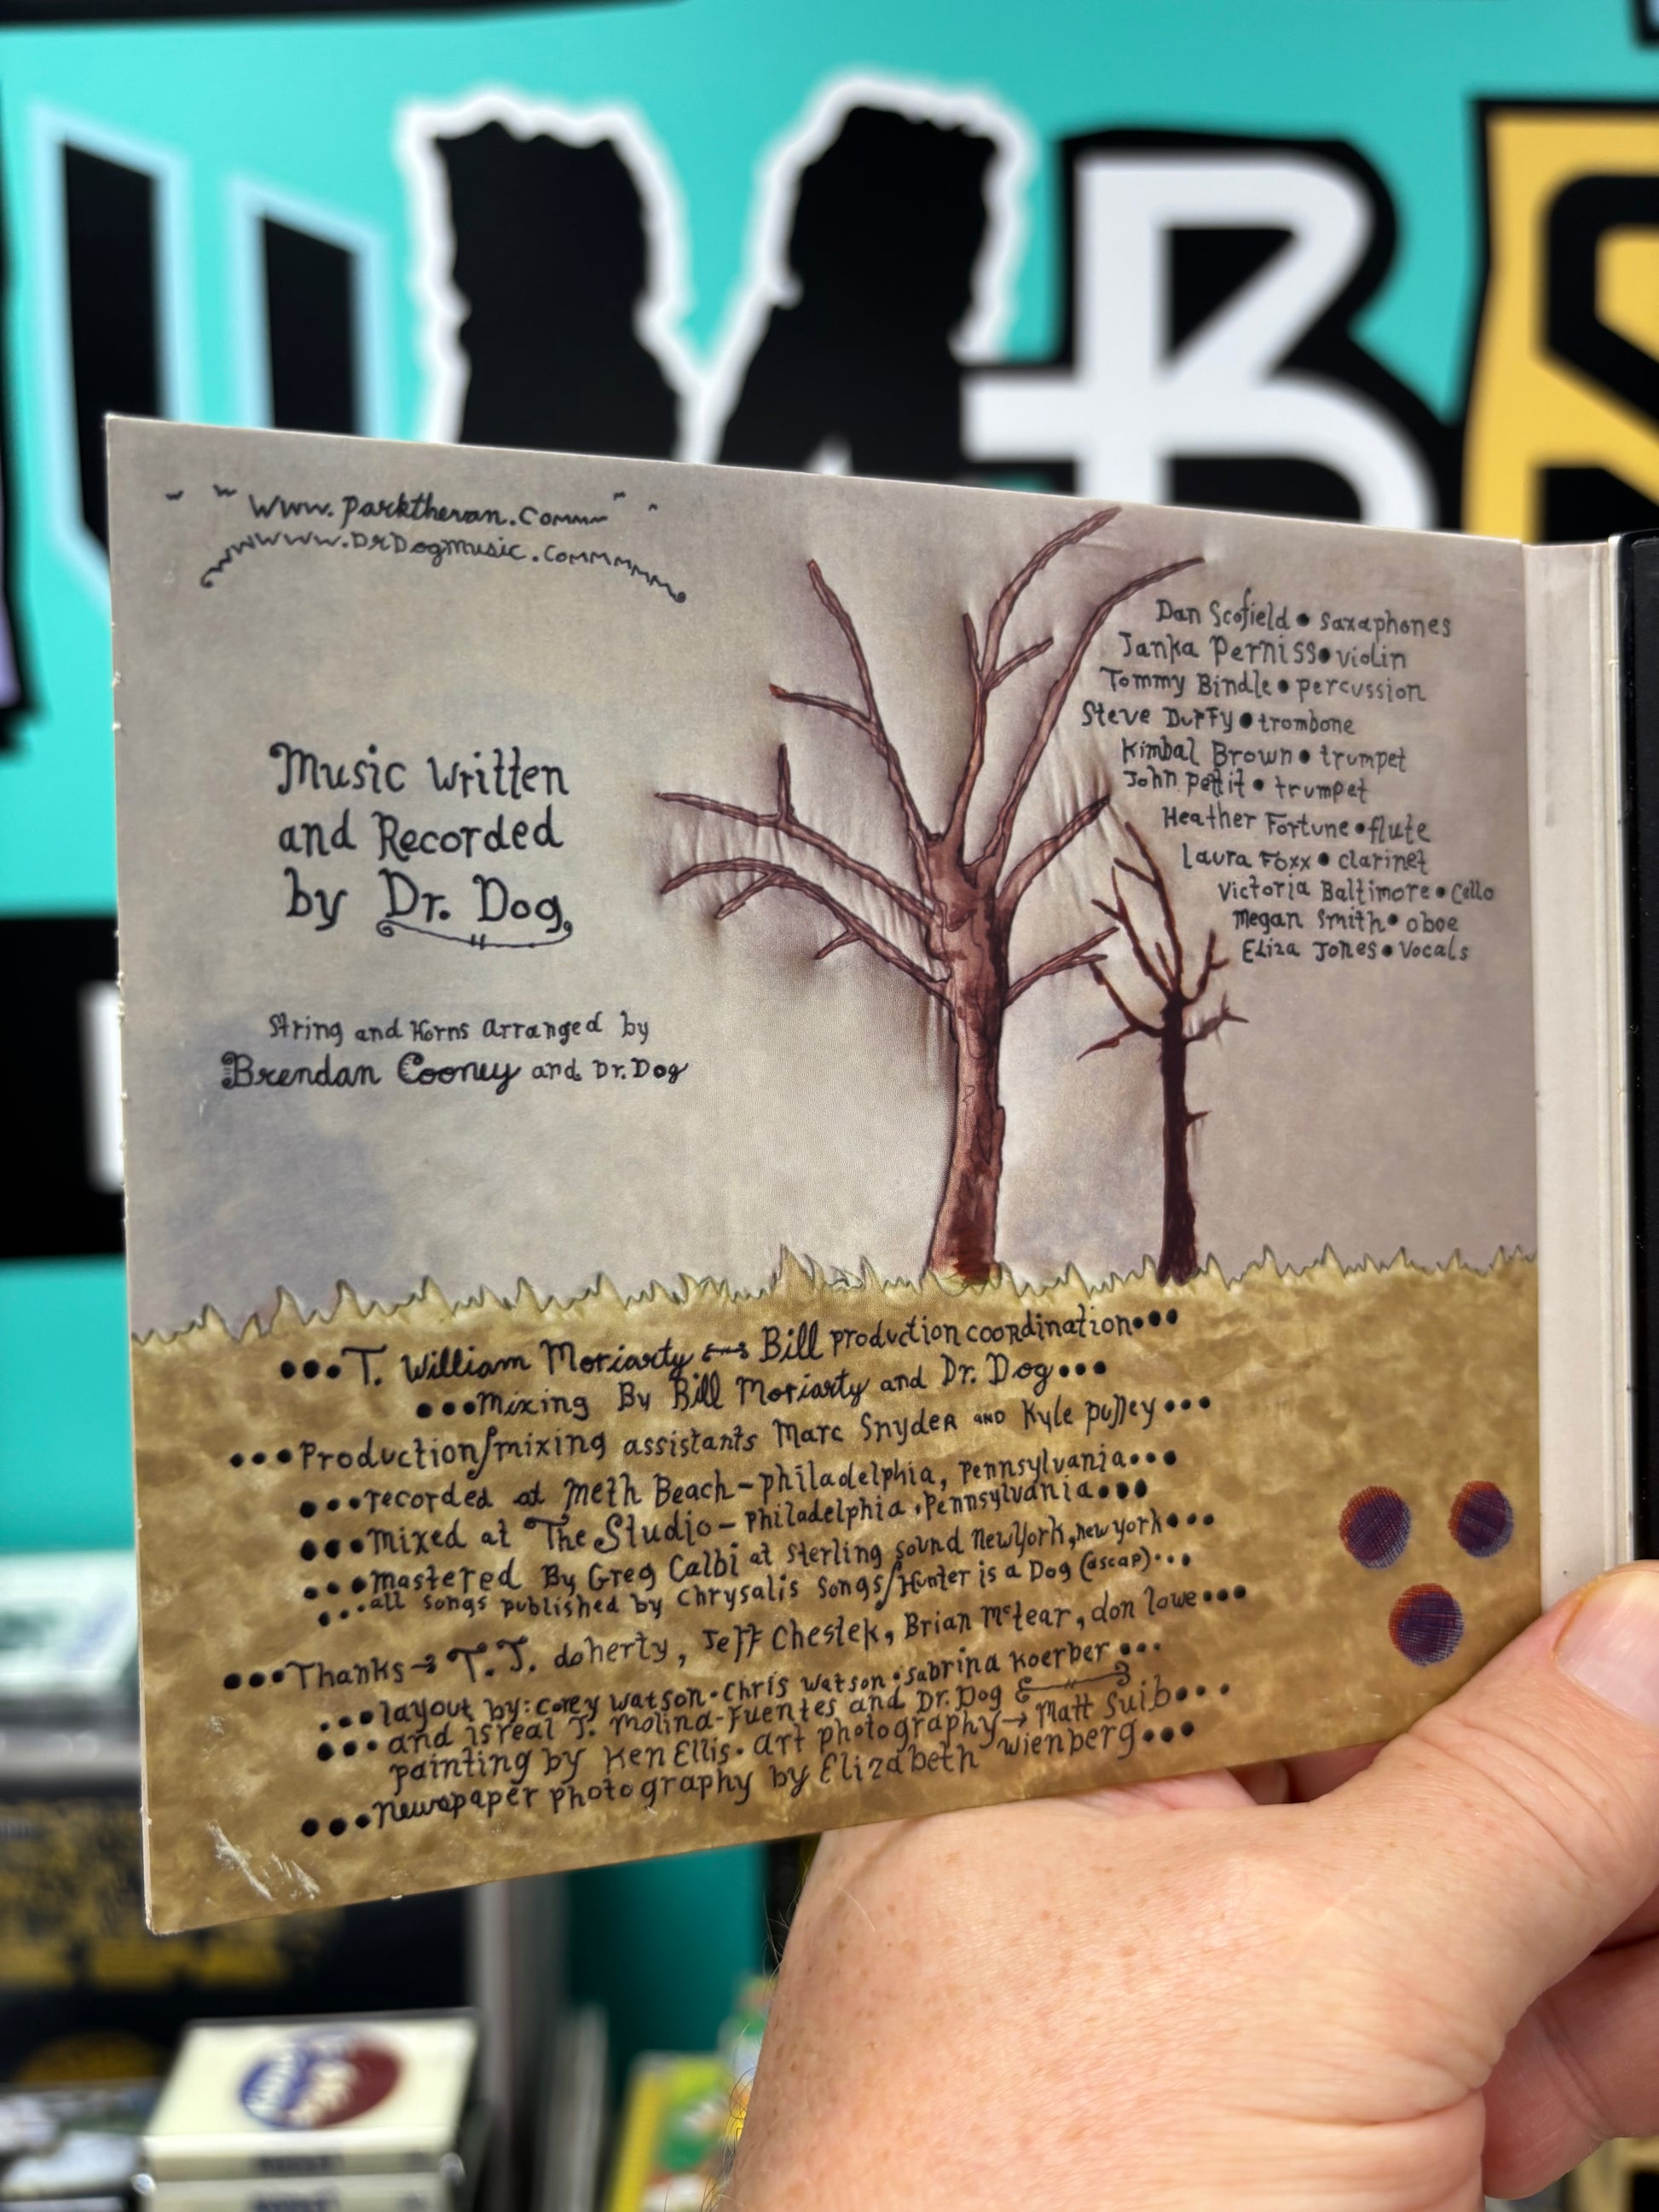 www.parkthevan.com
www.DrDogmusic.commmmm
Music written
and Recorded
by Dr. Dog
String and Horns Arranged by
Brendan Cooney and Dr. Dog
Dan Scofield • saxaphones
Janka Perniss • violin
Tommy Bindle • percussion
Steve Duffy • trombone
Kimbal Brown • trumpet
John Pettit • trumpet
Heather Fortune • flute
Laura Foxx • clarinet
Victoria Baltimore • Cello
Megan Smith • oboe
Eliza Jones • Vocals
•••T. William Moriarty ↔ Bill production coordination•••
•••mixing By Bill Moriarty and Dr. Dog•••
•••Production/mixing assistants Marc Snyder AND Kyle pulley•••
•••recorded at Meth Beach-philadelphia, Pennsylvania•••
•••mixed at The Studio-Philadelphia, Pennsylvania•••
•••mastered By Greg Calbi at sterling sound New York, new york•••
•••all songs published by Chrysalis Songs/Hunter is a Dog (ascap)•••
•••Thanks→ T.J. doherty, Jeff Chestek, Brian McTear, don lowe•••
•••layout by: Corey Watson • Chris Watson • Sabrina Koerber•••
•••and isreal J. Molina-Fuentes and Dr. Dog
painting by Ken Ellis • Art photography→ Matt Suib•••
•••newspaper photography by Elizabeth Wienberg•••